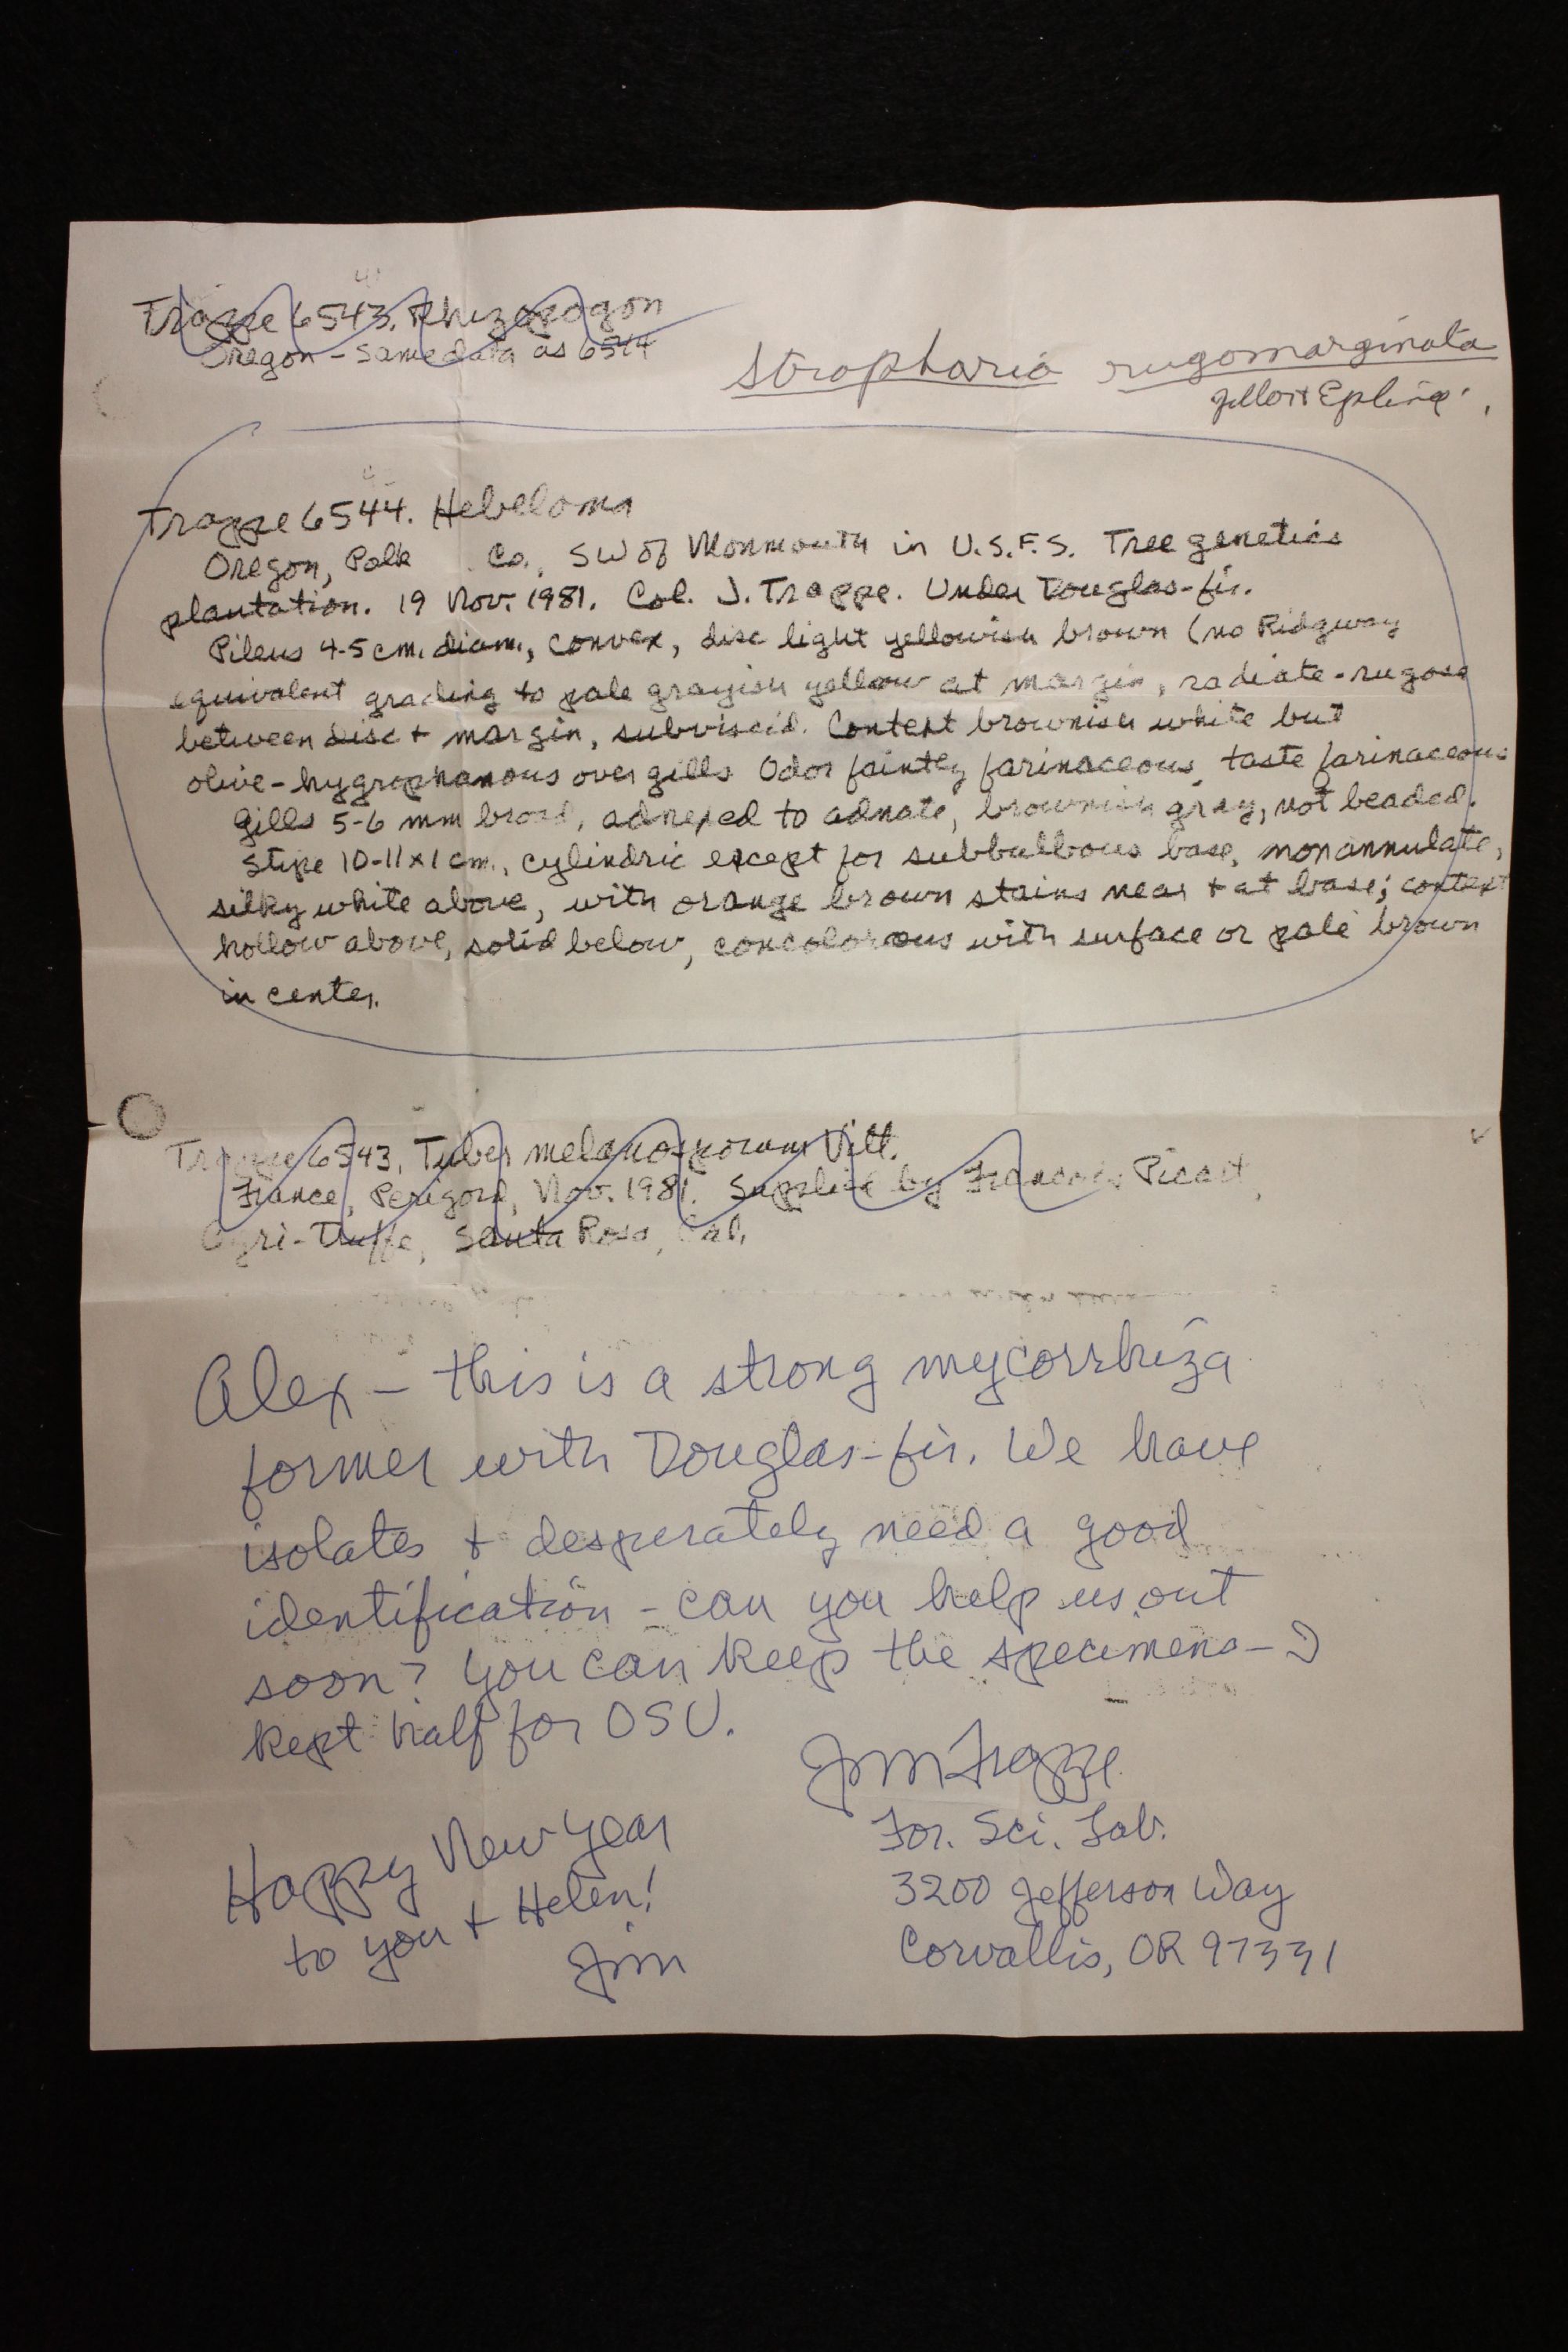 Trappe 6543. Rhizopogon
Oregon - Same data as 6544
Stropharia rugomarginata
Trappe 6544. Hebeloma
Oregon, Polk Co., SW of Monmouth in U.S.F.S. Tree genetics
plantation. 19 Nov. 1981. Col. J. Trappe. Under Douglas-fir.
Pileus 4-5 cm. diam., convex, disc light yellowish brown (no Ridgway
equivalent grading to pale grayish yellow at margin, radiate-rugose
between disc + margin, subviscid. Context brownish white but
olive-hygrophanous over gills. Odor faintly farinaceous, taste farinaceous
Gills 5-6 mm broad, adnexed to adnate, brownish gray, not beaded.
Stipe 10-11 x 1 cm., cylindric except for subbulbous base, nonannulate,
silky white above, with orange brown stains near + at base; context
hollow above, solid below, concolorous with surface or pale brown
in center.
Trappe 6543, Tuber melanosporum Vitt.
France, Perigord, Nov. 1981. Supplied by Francois Picart,
Agri-Truffe, Santa Rosa, Cal.
Alex - this is a strong mycorrhiza
former with Douglas-fir. We have
isolates + desperately need a good
identification - can you help us out
soon? You can keep the specimens - I
kept half for OSU.
Jim Trappe
For. Sci. Lab.
3200 Jefferson Way
Corvallis, OR 97331
Happy New Year
to you + Helen!
Jim